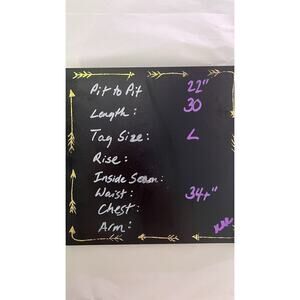 Pit to Pit 22"
Length: 30
Tag Size: L
Rise:
Inside Seam:
Waist: 34+"
Chest:
Arm: